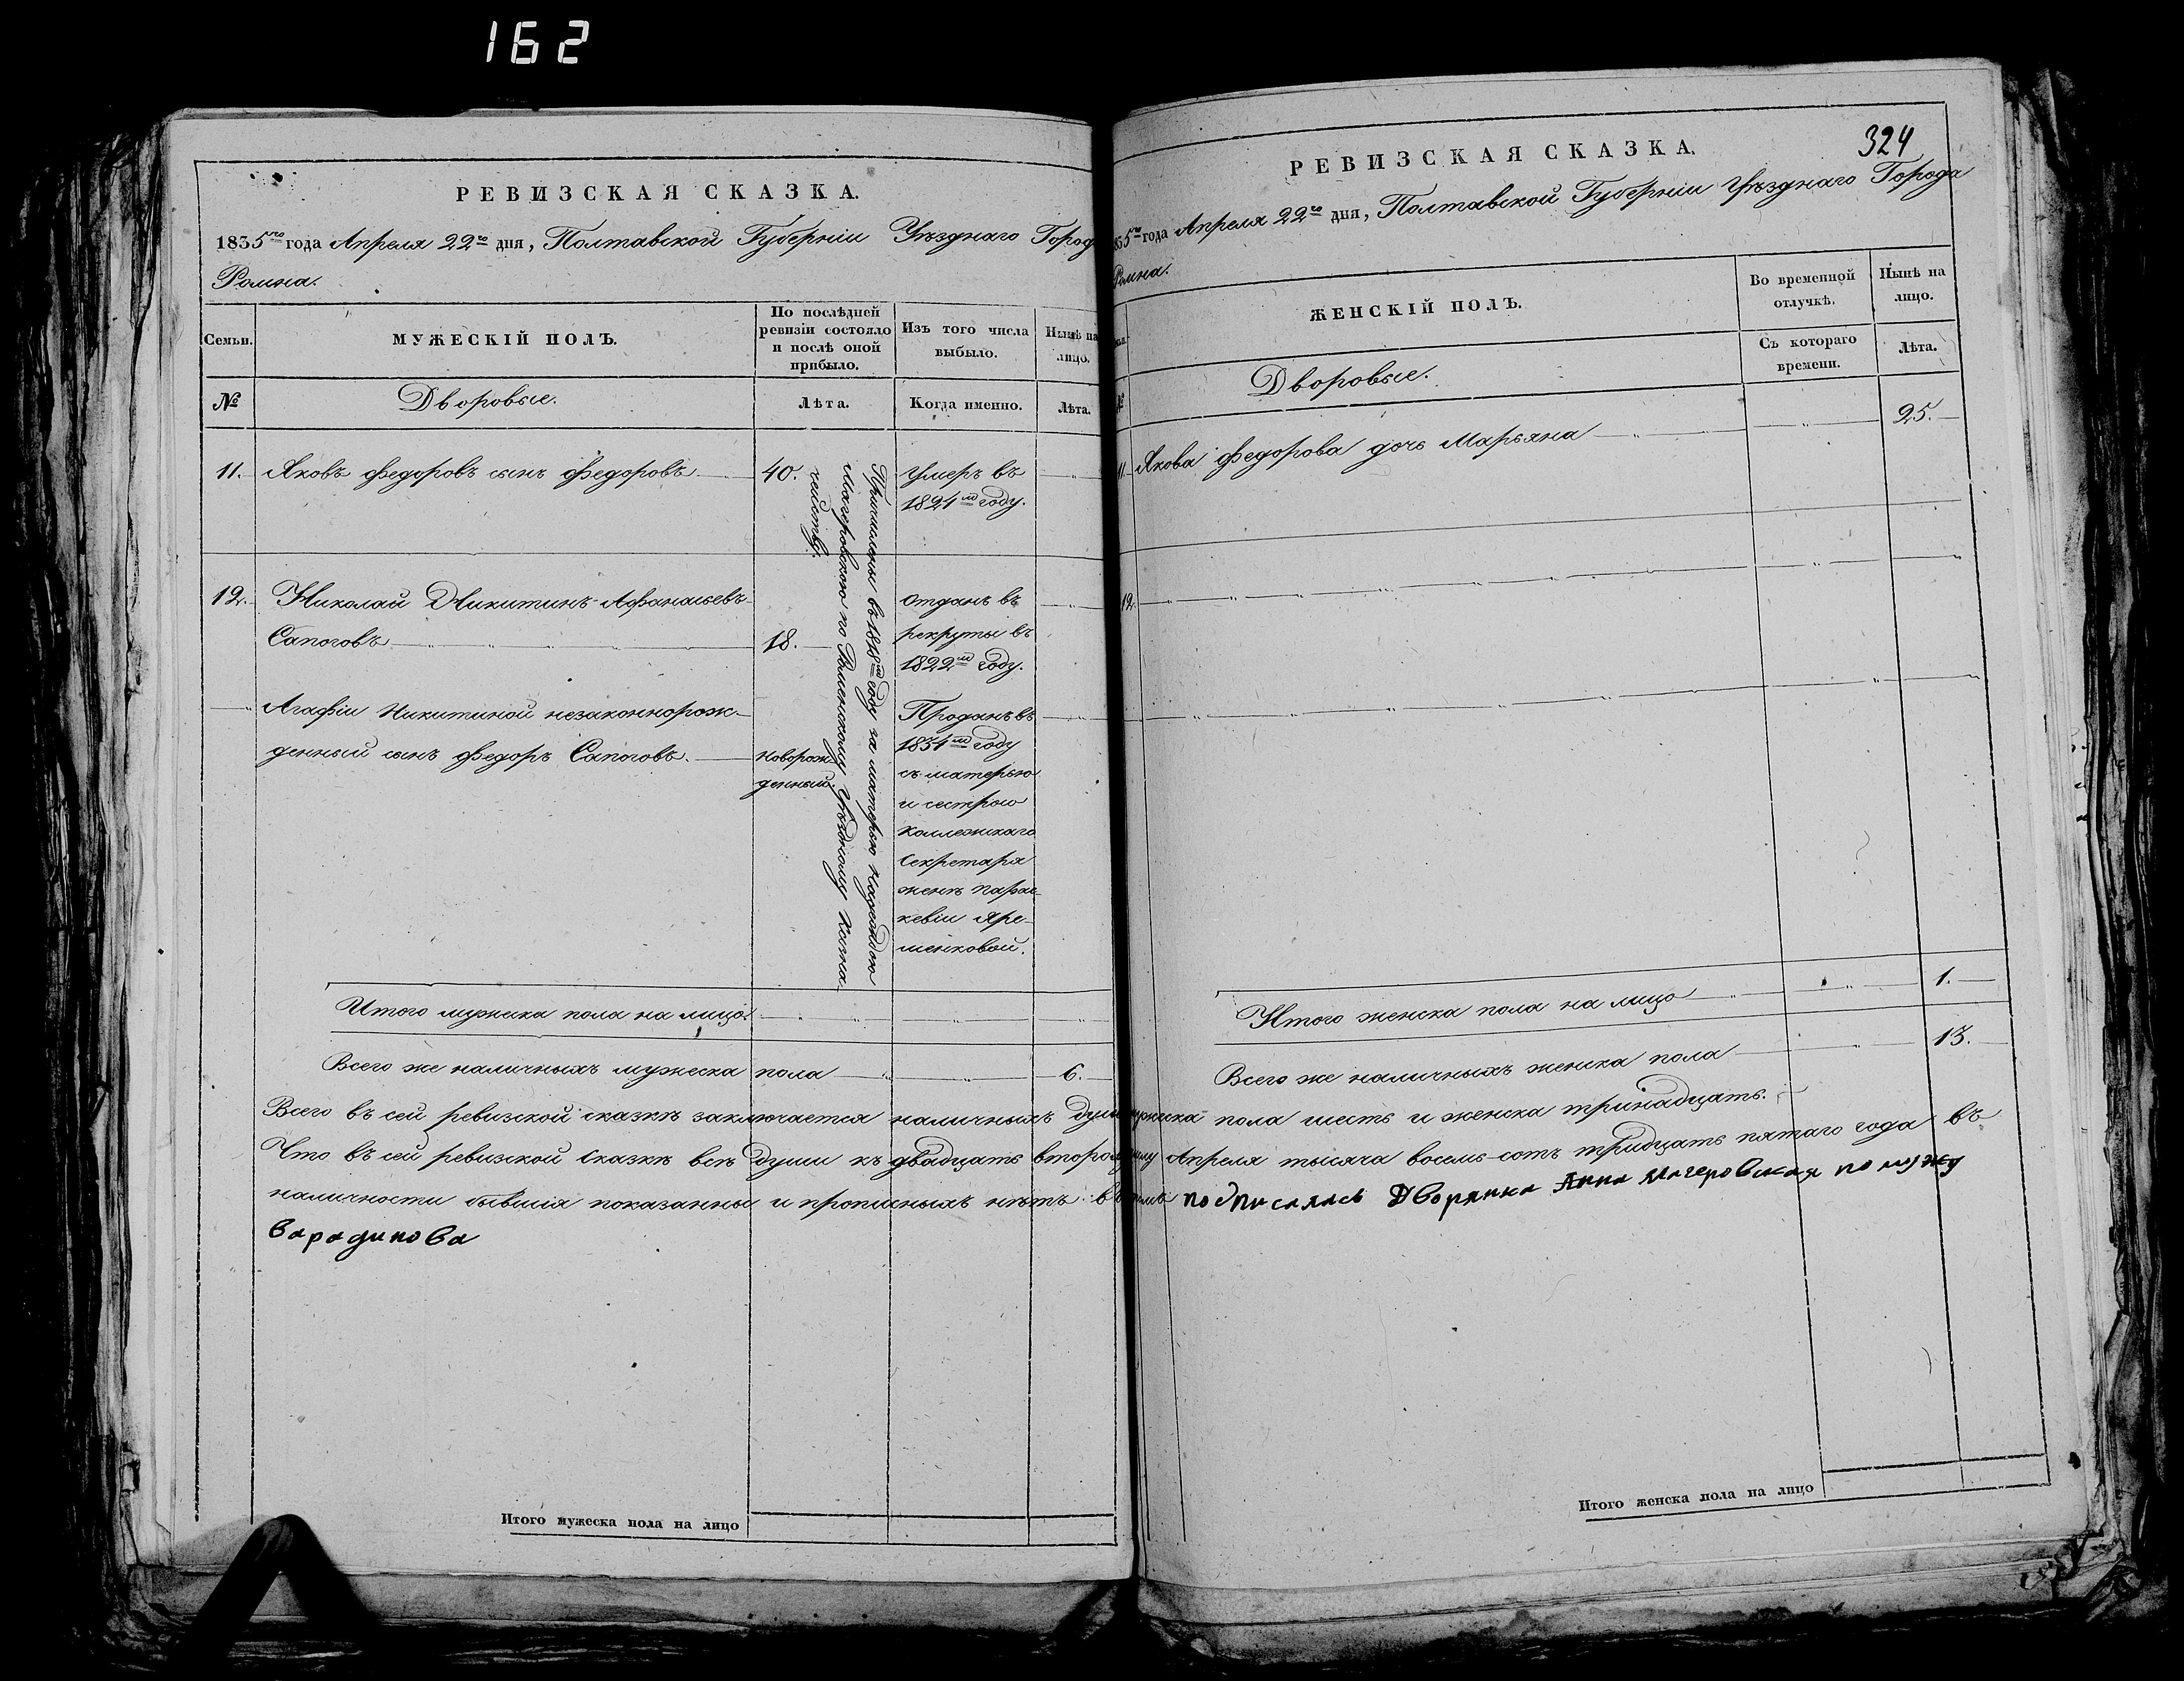 162
РЕВИЗСКАЯ СКАЗКА.
1835го года Апреля 22го дня, Полтавской Губерніи Уѣзднаго Город
Ромна.
Семьи.
МУЖЕСКІЙ ПОЛЪ.
По послѣдней
ревизіи состояло
и послѣ оной
прибыло.
Изъ того числа
выбыло.
Нынѣ на
лицо.
№
Дворовые.
Лѣта.
Когда именно.
Лѣта.
11. Яковъ Федоровъ сынъ Федоровъ 40. умеръ въ
1821м году.
12. Николай Никитинъ Афанасьевъ отданъ въ
Сапоговъ 18. рекруты въ
1822м году.
Агафіи Никитиной незаконнорож-
денный сынъ Федоръ Сапоговъ. новорож-
денный.
Проданъ въ
1834м году
съ матерью
и сестрою
коллежскаго
Секретаря
женѣ Парас-
кевіи Яре-
менковой.
Причислены въ 1818м году за матерью Надеждою
Магеровскою по Роменскому уѣздному Казна-
чейству.
Итого мужеска пола на лицо.
Всего же наличныхъ мужеска пола 6.
324
РЕВИЗСКАЯ СКАЗКА.
1835го года Апреля 22го дня, Полтавской Губерніи Уѣзднаго Города
Ромна.
ЖЕНСКІЙ ПОЛЪ.
Во временной
отлучкѣ.
Нынѣ на
лицо.
Съ котораго
времени.
Лѣта.
№
Дворовые.
11. Якова Федорова дочь Марьяна 25.
12.
Итого женска пола на лицо 1.
Всего же наличныхъ женска пола 13.
Всего въ сей ревизской сказкѣ заключается наличныхъ душъ мужеска пола шесть и женска тринадцать.
Что въ сей ревизской сказкѣ всѣ души къ двадцать второму Апреля тысяча восемь-сотъ тридцать пятаго года въ
наличности бывшія показанны и прописныхъ нѣтъ: въ томъ подписалась Дворянка Анна Магеровская по мужу
Варадинова
Итого мужеска пола на лицо
Итого женска пола на лицо